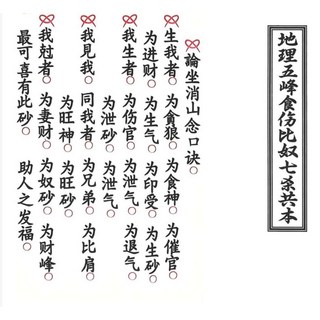 地理五峰食伤比奴七杀共本
論坐消山念口诀
生我者 为貪狼 为食神 为催官
为进财 为生气 为印受 为生砂
我生者 为伤官 为泄气 为退气
为泄砂 为泄气
我見我 同我者 为兄弟 为比肩
为旺神 为旺砂
我尅者 为妻财 为奴砂 为财峰
最可喜有此砂 助人之发福